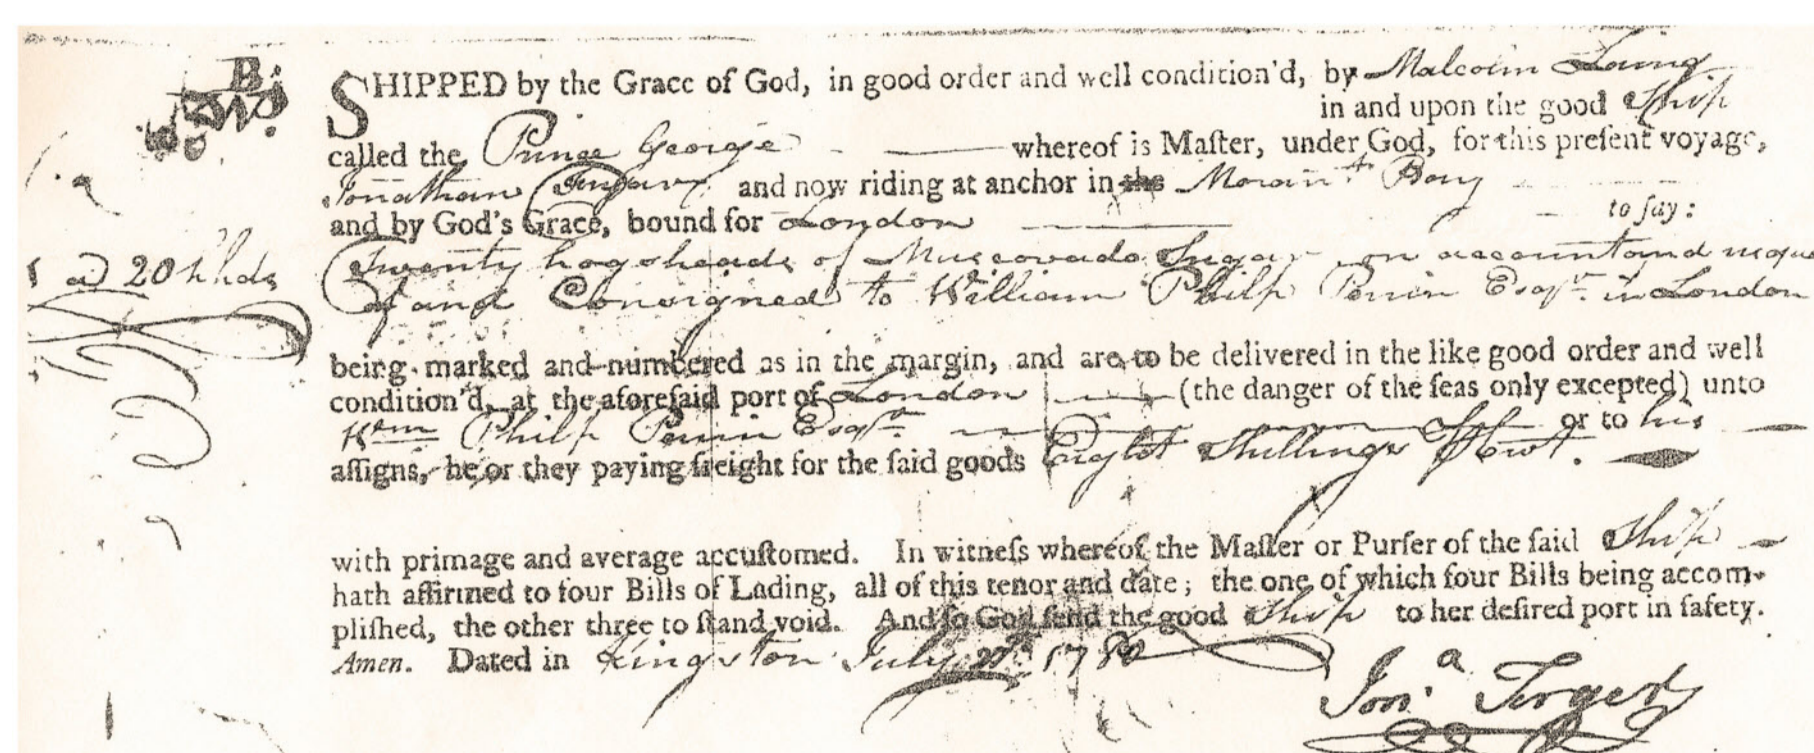 SHIPPED by the Grace of God, in good order and well condition'd, by Malcolm Laing
in and upon the good Ship
called the Prince George whereof is Maſter, under God, for this preſent voyage,
Jonathan and now riding at anchor in the Morant Bay
and by God's Grace, bound for London to ſay:
1 a 20 hhds
Twenty hogsheads of Muscovado Sugar on account and
and Consigned to William Philp Perrin Esqr. in London
being marked and numbered as in the margin, and are to be delivered in the like good order and well
condition'd, at the aforeſaid port of London (the danger of the ſeas only excepted) unto
Wm Philp Perrin Esqr. or to his
aſſigns, he or they paying freight for the ſaid goods Eight Shillings Cwt.
with primage and average accuſtomed. In witneſs whereof the Maſter or Purſer of the ſaid Ship
hath affirmed to four Bills of Lading, all of this tenor and date; the one of which four Bills being accom-
pliſhed, the other three to ſtand void. And ſo God ſend the good Ship to her deſired port in ſafety.
Amen. Dated in Kingston July 1780
Jona